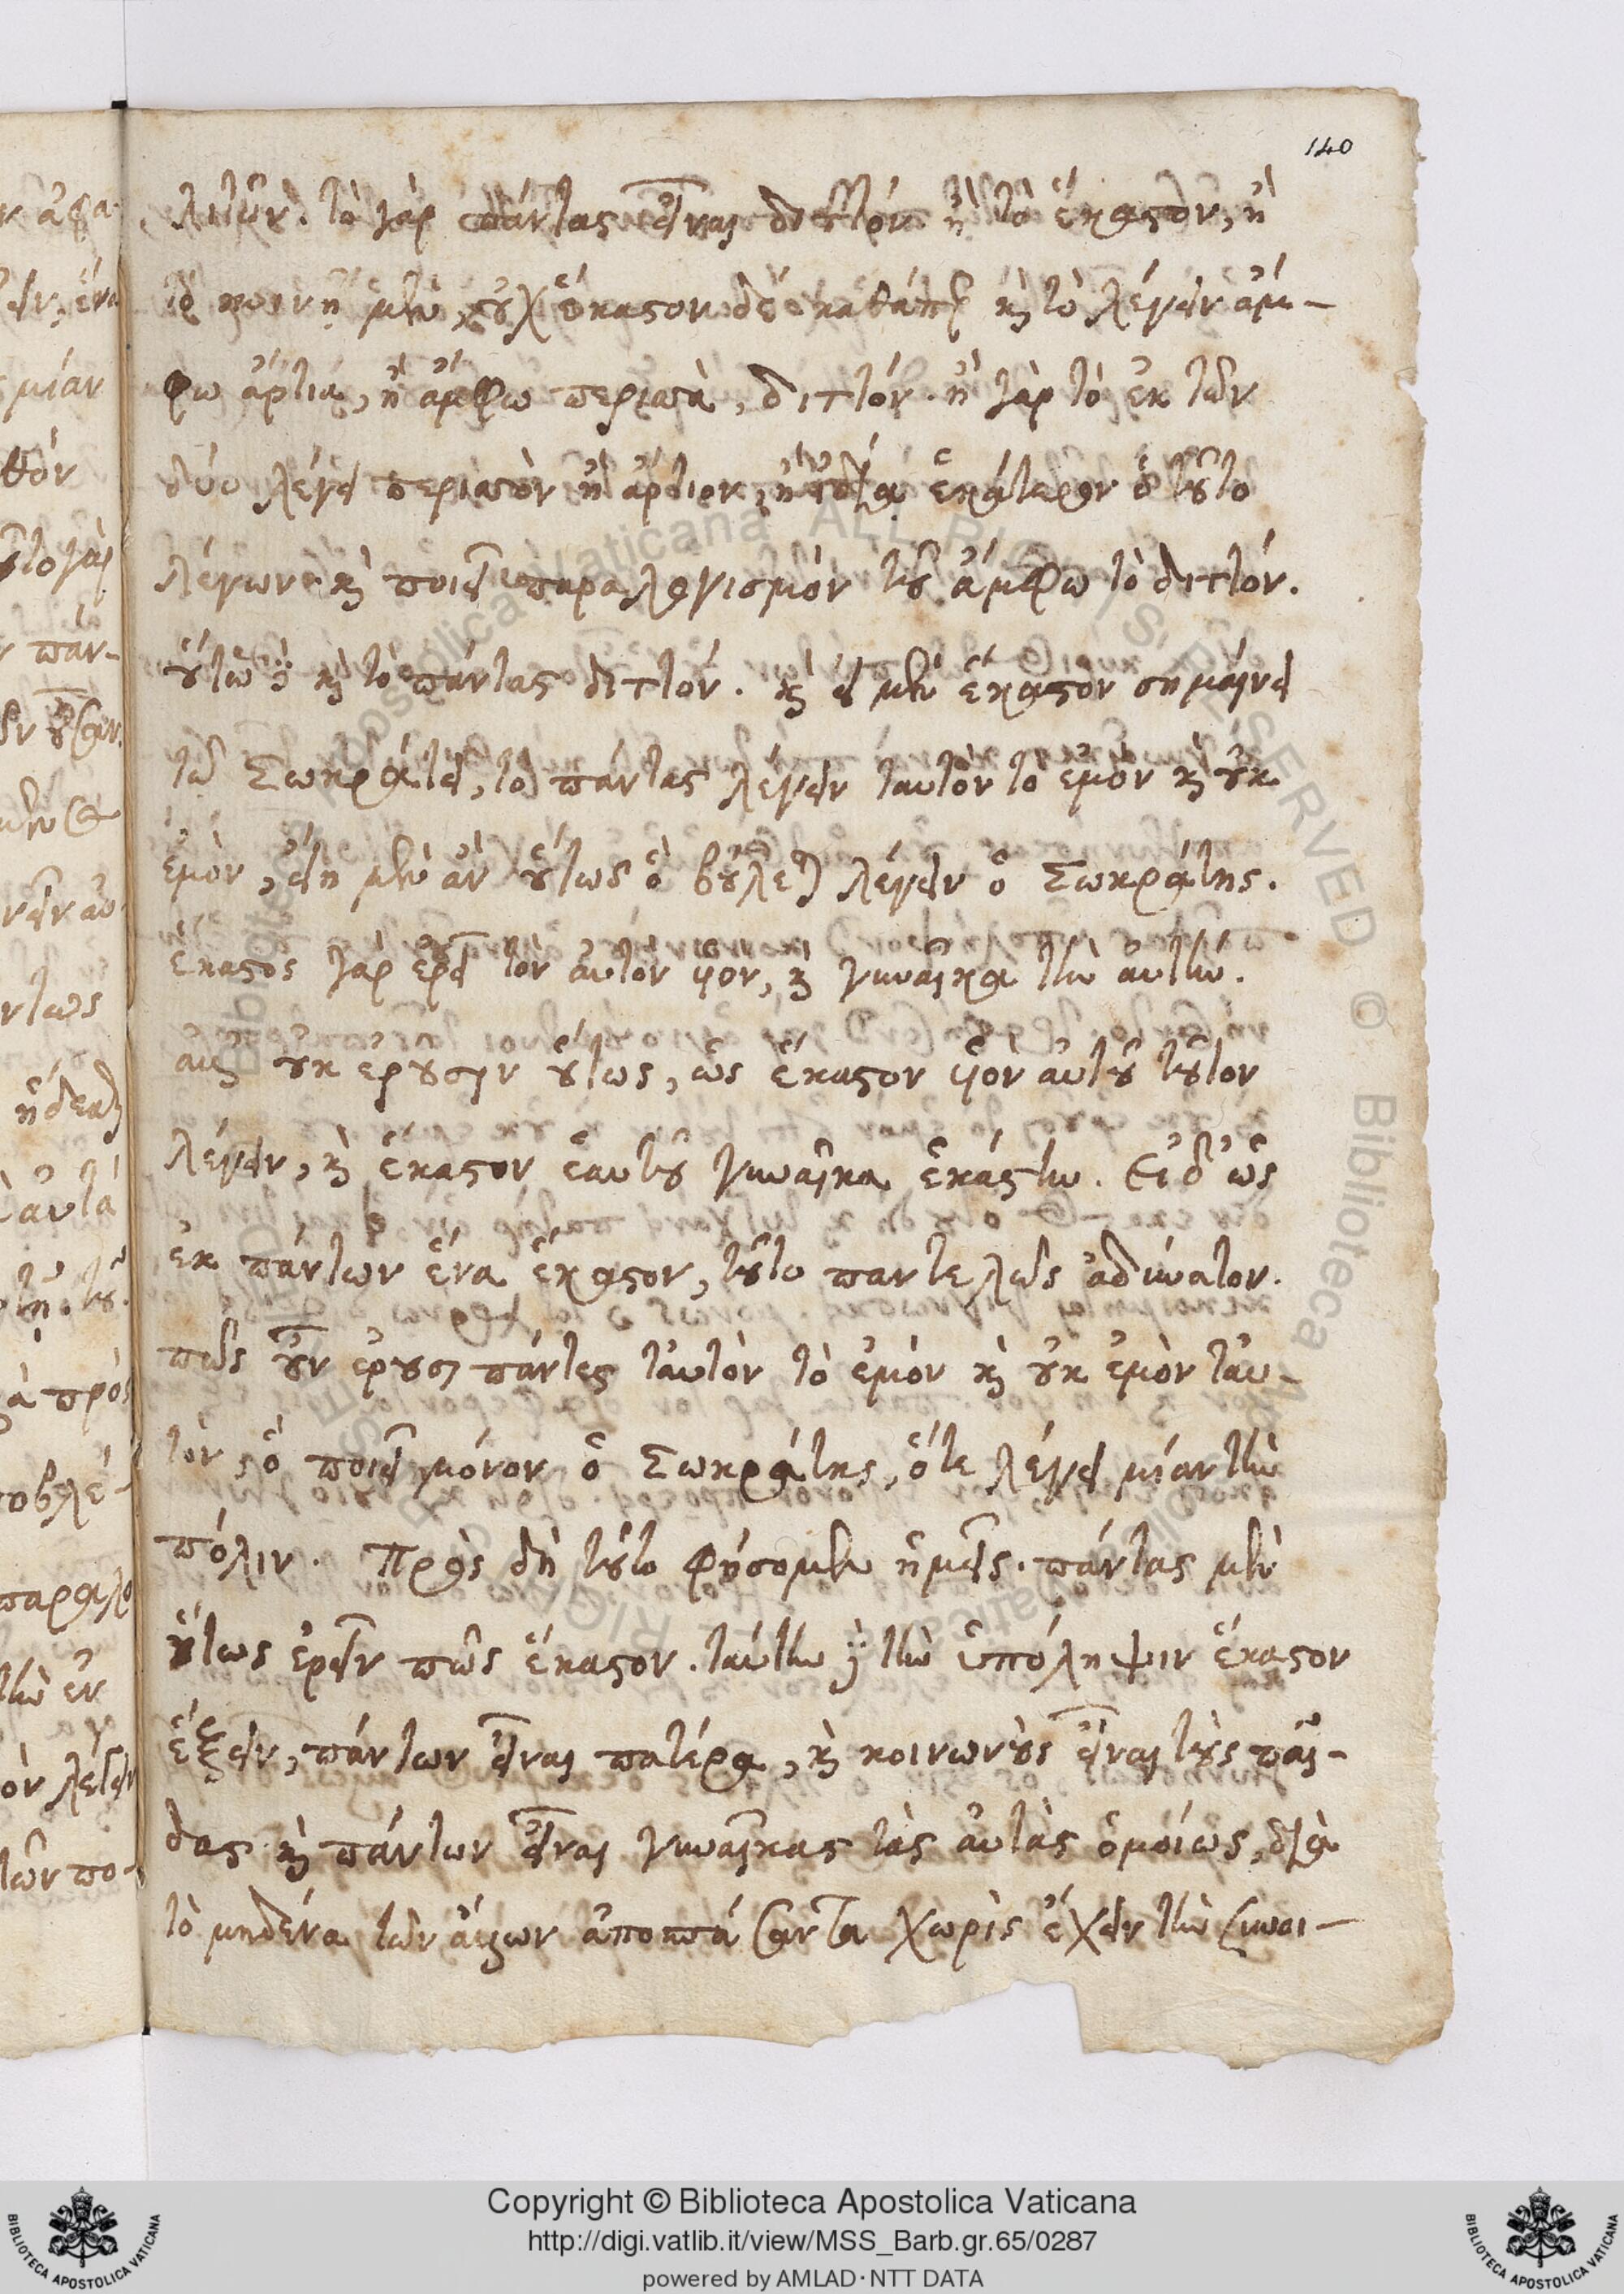 140
λιτῶν. τὸ γὰρ πάντας εἶναι διττόν. ἢ τὸ ἕκαστον, ἢ
τὸ κοινῇ μὲν, οὐχ ἕκαστον δέ· καθάπερ καὶ τὸ λέγειν ἄμ-
φω ἄρτια, ἢ ἄμφω περιττὰ, διττόν. ἢ γὰρ τὸ ἐκ τῶν
δύο λέγει περιττὸν ἢ ἄρτιον, ἢ ὅτι ἑκάτερον ὁ τοῦτο
λέγων· καὶ ποιεῖ παραλογισμὸν τοῦ ἄμφω τὸ διττόν.
οὕτω δὲ καὶ τὸ πάντας διττόν. καὶ εἰ μὲν ἕκαστον σημαίνει
τῷ Σωκράτει, τὸ πάντας λέγειν ταυτὸν τὸ ἐμὸν καὶ οὐκ
ἐμὸν, εἴη μὲν ἂν οὕτως ὃ βούλεται λέγειν ὁ Σωκράτης.
ἕκαστος γὰρ ἐρεῖ τὸν αὐτὸν υἱὸν, καὶ γυναῖκα τὴν αὐτήν.
ἀλλ' οὐκ ἐροῦσιν οὕτως, ὡς ἕκαστον υἱὸν αὐτοῦ τοῦτον
λέγειν, καὶ ἕκαστον ἑαυτοῦ γυναῖκα ἑκάστην. Εἰ δ' ὡς
ἐκ πάντων ἕνα ἕκαστον, τοῦτο παντελῶς ἀδύνατον.
πῶς οὖν ἐροῦσι πάντες ταὐτὸν τὸ ἐμὸν καὶ οὐκ ἐμὸν ταυ-
τὸν, ὃ ποιεῖ μόνον ὁ Σωκράτης, ὅτε λέγει μίαν τὴν
πόλιν. Πρὸς δὴ τοῦτο φήσομεν ἡμεῖς. πάντας μὲν
οὕτως ἐρεῖν πῶς ἕκαστον. ταύτην γὰρ τὴν ὑπόληψιν ἕκαστον
ἕξειν, πάντων εἶναι πατέρα, καὶ κοινωνοὺς εἶναι τοὺς παῖ-
δας καὶ πάντων εἶναι γυναῖκας τὰς αὐτὰς ὁμοίως, διὰ
τὸ μηδένα τῶν ἄλλων ἀποσπάσαντα χωρὶς ἔχειν τὴν συνοι-
Copyright © Biblioteca Apostolica Vaticana
http://digi.vatlib.it/view/MSS_Barb.gr.65/0287
powered by AMLAD·NTT DATA